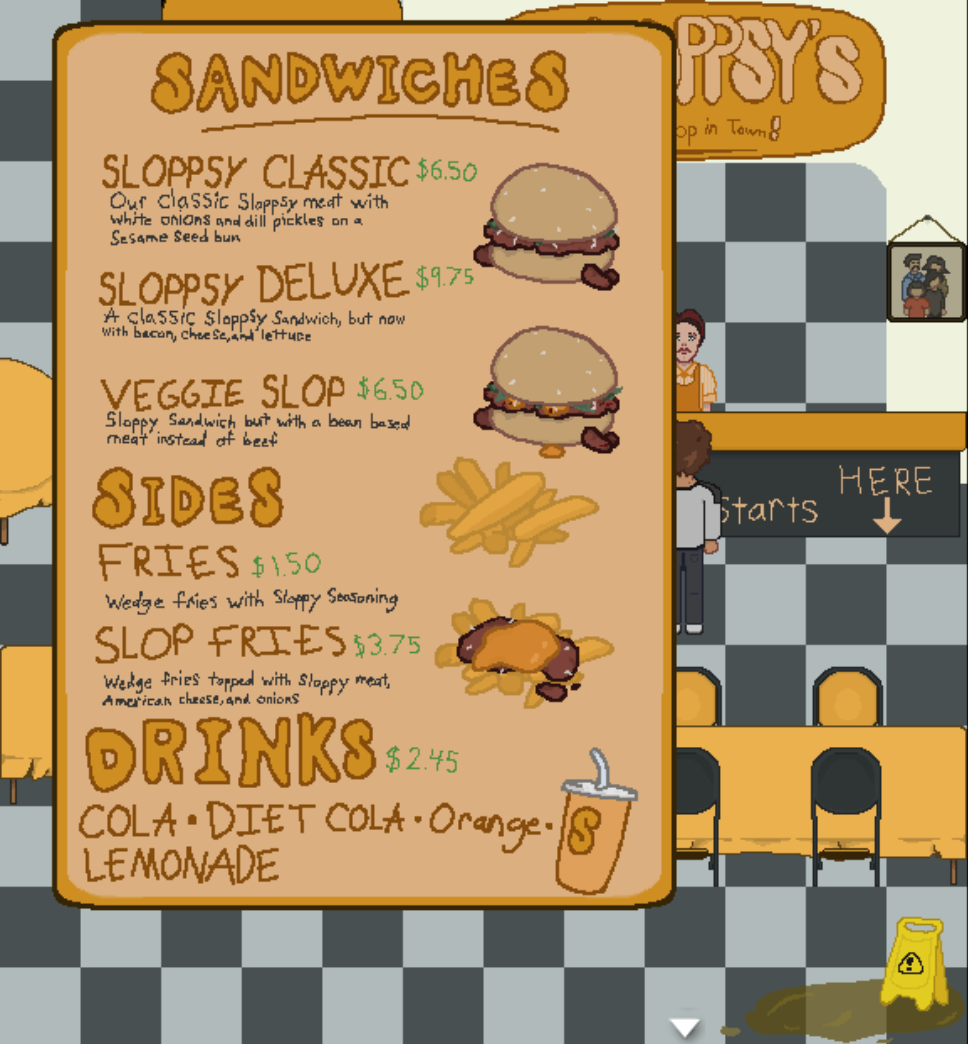 SANDWICHES
SLOPPSY CLASSIC $6.50
Our Classic Sloppsy meat with
white onions and dill pickles on a
Sesame Seed bun
SLOPPSY DELUXE $9.75
A Classic Sloppsy Sandwich, but now
with bacon, cheese, and lettuce
VEGGIE SLOP $6.50
Sloppy Sandwich but with a bean based
meat instead of beef
SIDES
FRIES $1.50
Wedge fries with Sloppy Seasoning
SLOP FRIES $3.75
Wedge fries topped with Sloppy meat,
American cheese, and onions
DRINKS $2.45
COLA • DIET COLA • Orange •
LEMONADE
S
PPSY'S
op in Town!
starts HERE